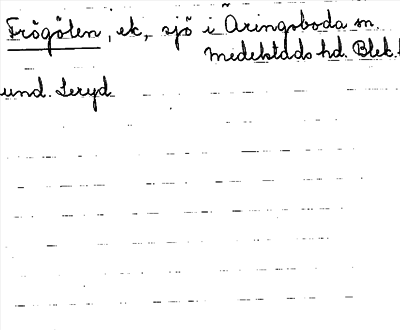 Frögölen, ek, sjö i Åringsboda sn.
Medelstads hd. Blek.l
und. Leryd